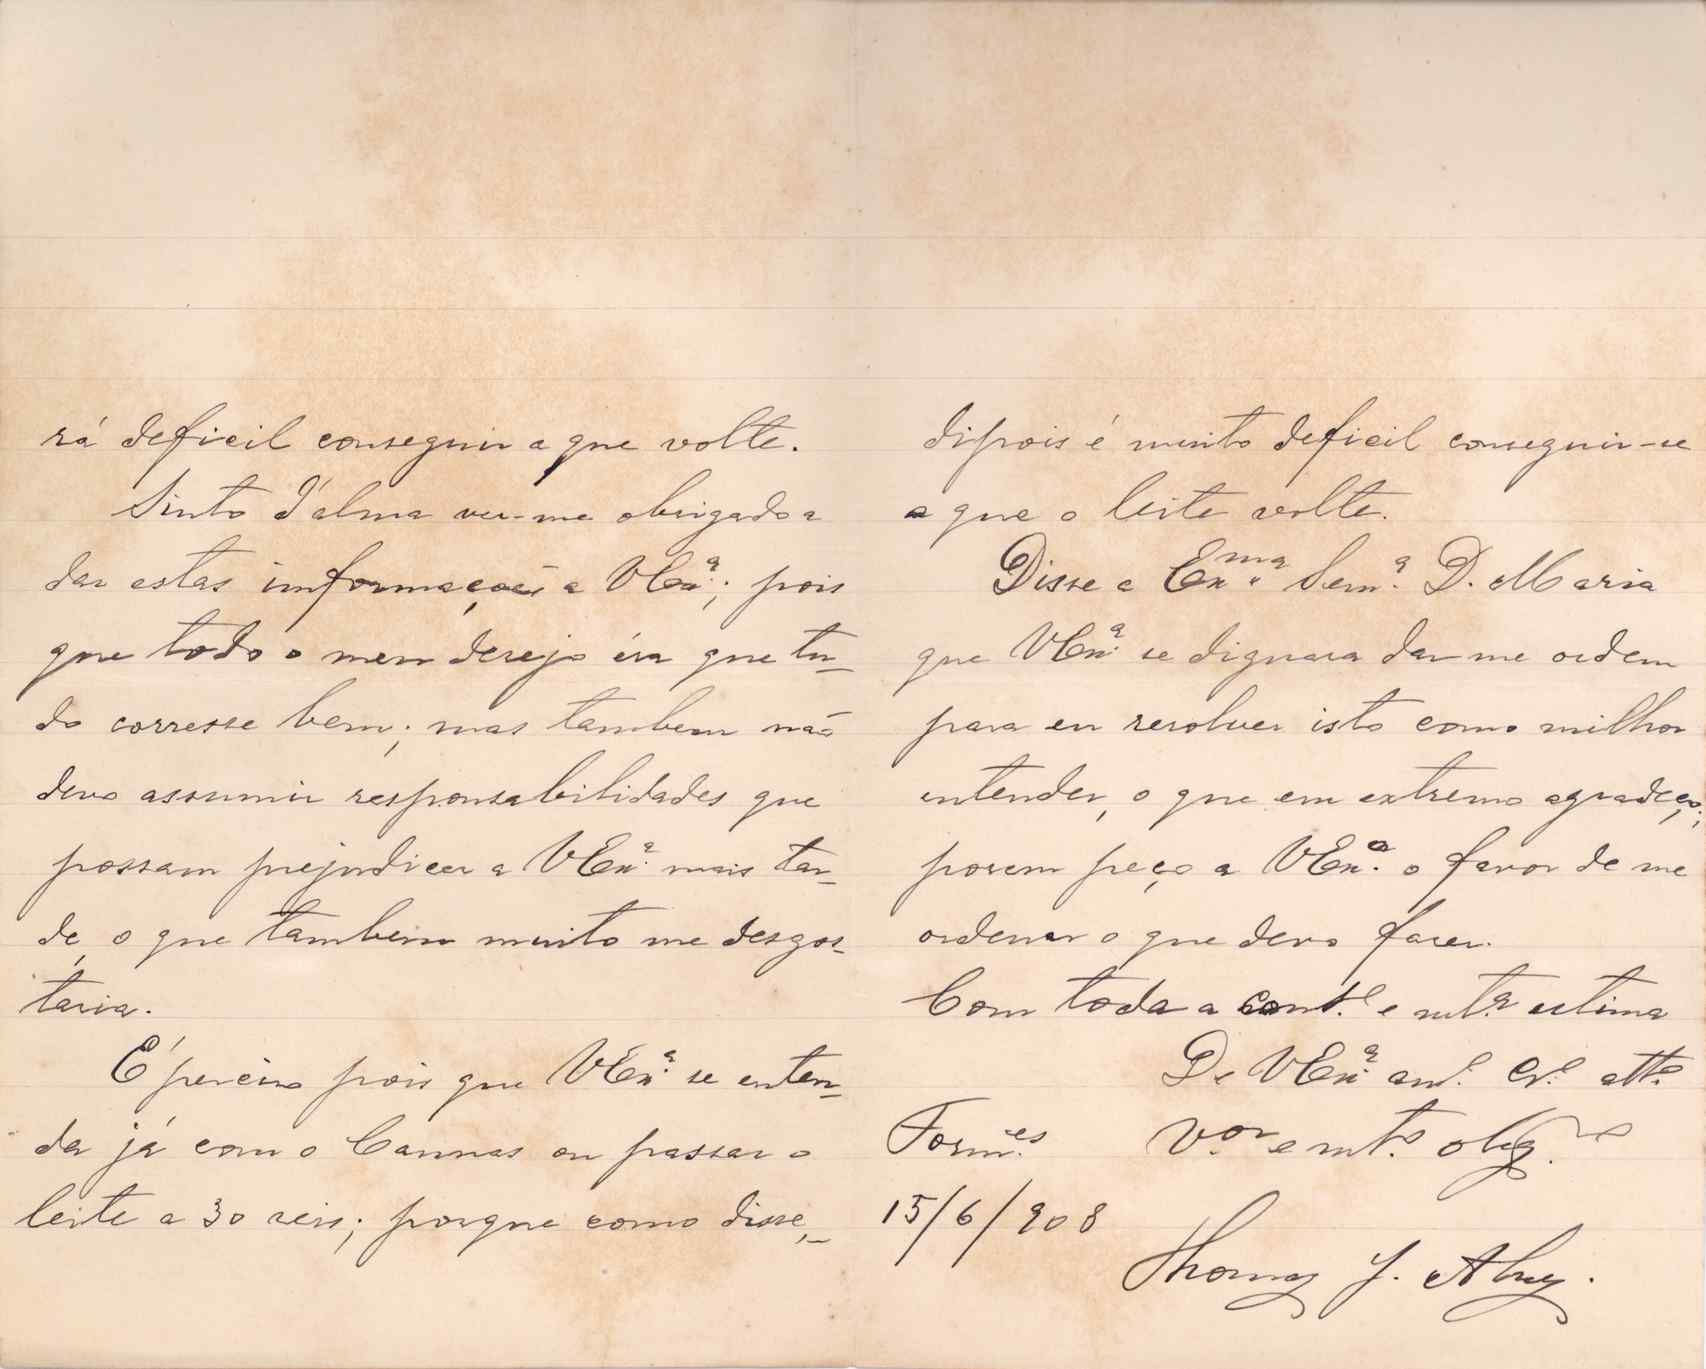 rá deficil conseguir a que volte.
Sinto d'alma ver-me obrigado a
dar estas imformações a VExª.; pois
que todo o meu desejo éra que tu-
do corresse bem; mas tambem não
devo assumir responsabilidades que
possam prejudicar a VExª. mais tar-
de, o que tambem muito me desgos-
taria.
É percizo pois que VExª. se enten-
da já com o Cannas ou passar o
leite a 30 reis; porque como disse,-
dipois é muito deficil conseguir-se
a que o leite volte.
Disse a Exma. Senrª. D. Maria
que VExª. se dignara dar-me ordem
para eu resolver isto como milhor
entender, o que em extremo agradeço;
porem peço a VExª. o favor de me
ordenar o que devo fazer.
Com toda a consd.e e mt.ª estima
De VExª. amº. Crº. attº.
Forn.es Vor. e mtº. obgº.
15/6/908
Thomaz J. Alvz.